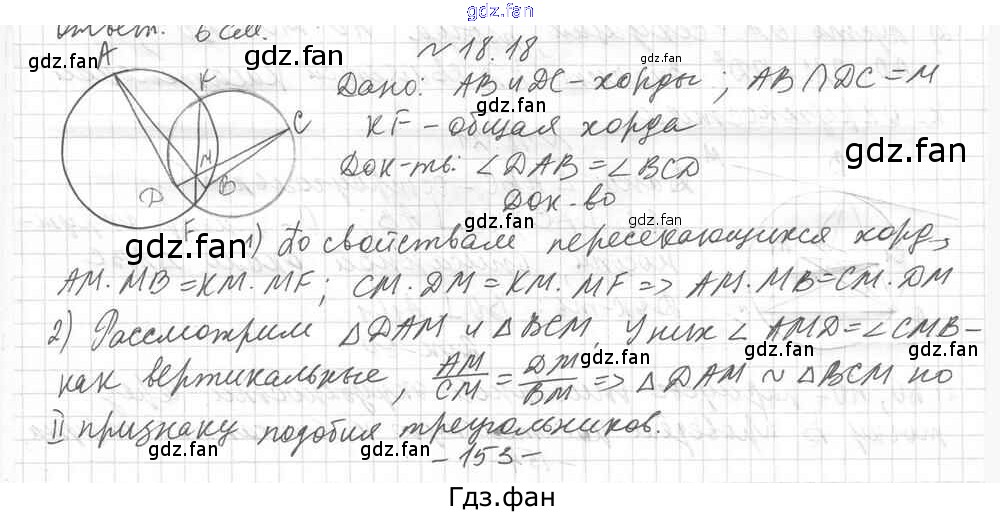 gdz.fan
Ответ. 6 см.
№ 18.18
gdz.fan
Дано: AB и DC – хорды; AB ∩ DC = M
KF – общая хорда
gdz.fan
Док-ть: ∠DAB = ∠BCD
gdz.fan
Док-во
A K C M D B F
gdz.fan
1) По свойствам пересекающихся хорд,
AM · MB = KM · MF; CM · DM = KM · MF => AM · MB = CM · DM
2) Рассмотрим △DAM и △BCM, У них ∠AMD = ∠CMB –
как вертикальные, AM/CM = DM/BM => △DAM ~ △BCM по
gdz.fan
II признаку подобия треугольников.
gdz.fan
gdz.fan
– 153 –
Гдз.фан